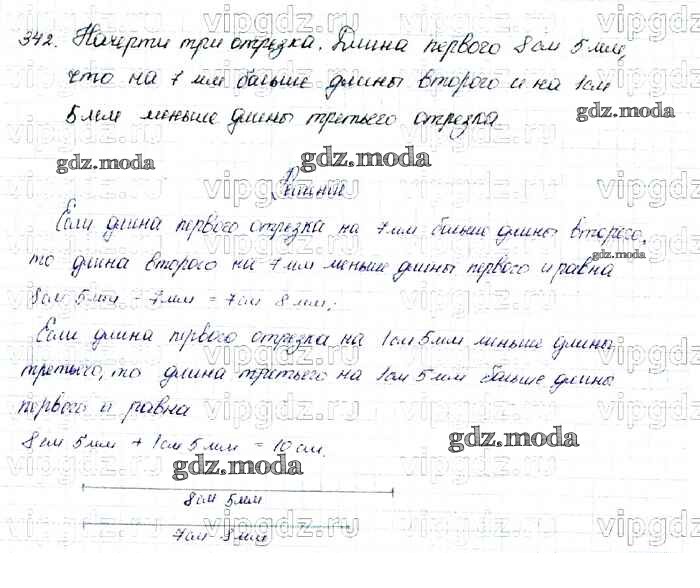 342. Начерти три отрезка. Длина первого 8 см 5 мм,
что на 7 мм больше длины второго и на 1 см
5 мм меньше длины третьего отрезка.
gdz.moda gdz.moda gdz.moda
Решение
Если длина первого отрезка на 7 мм больше длины второго,
то длина второго на 7 мм меньше длины первого и равна
gdz.moda
8 см 5 мм - 7 мм = 7 см 8 мм;
Если длина первого отрезка на 1 см 5 мм меньше длины
третьего, то длина третьего на 1 см 5 мм больше длины
первого и равна
8 см 5 мм + 1 см 5 мм = 10 см.
gdz.moda gdz.moda
8 см 5 мм
7 см 8 мм
vipgdz.ru